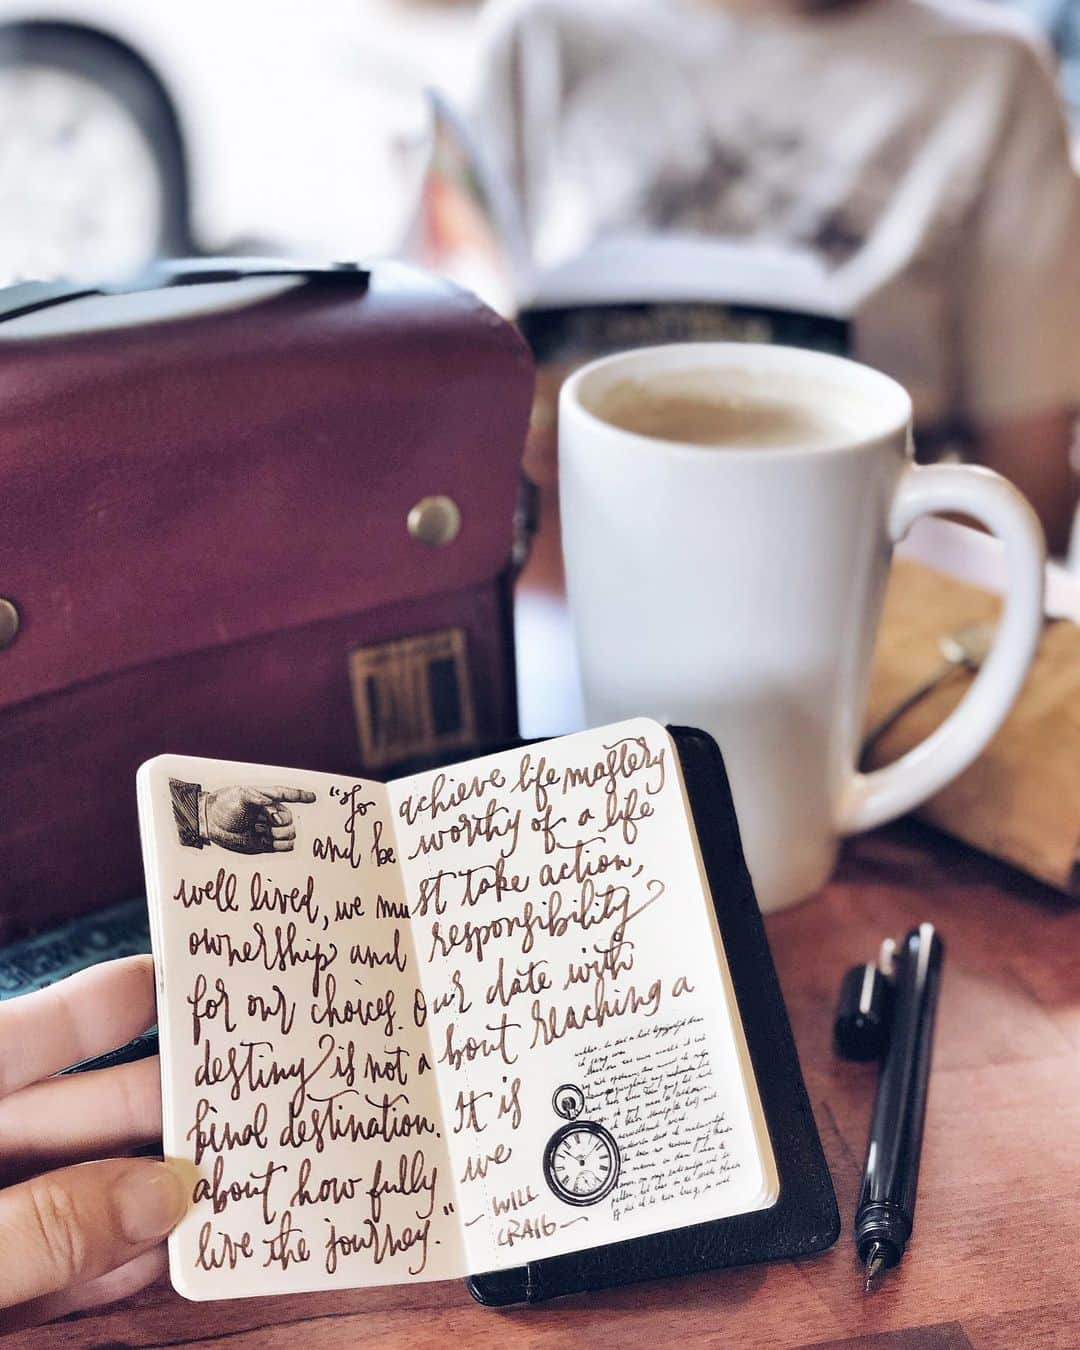 "To achieve life mastery
and be worthy of a life
well lived, we must take action,
ownership and responsibility
for our choices. Our date with
destiny is not about reaching a
final destination. It is
about how fully we
live the journey."
- WILL
CRAIG -